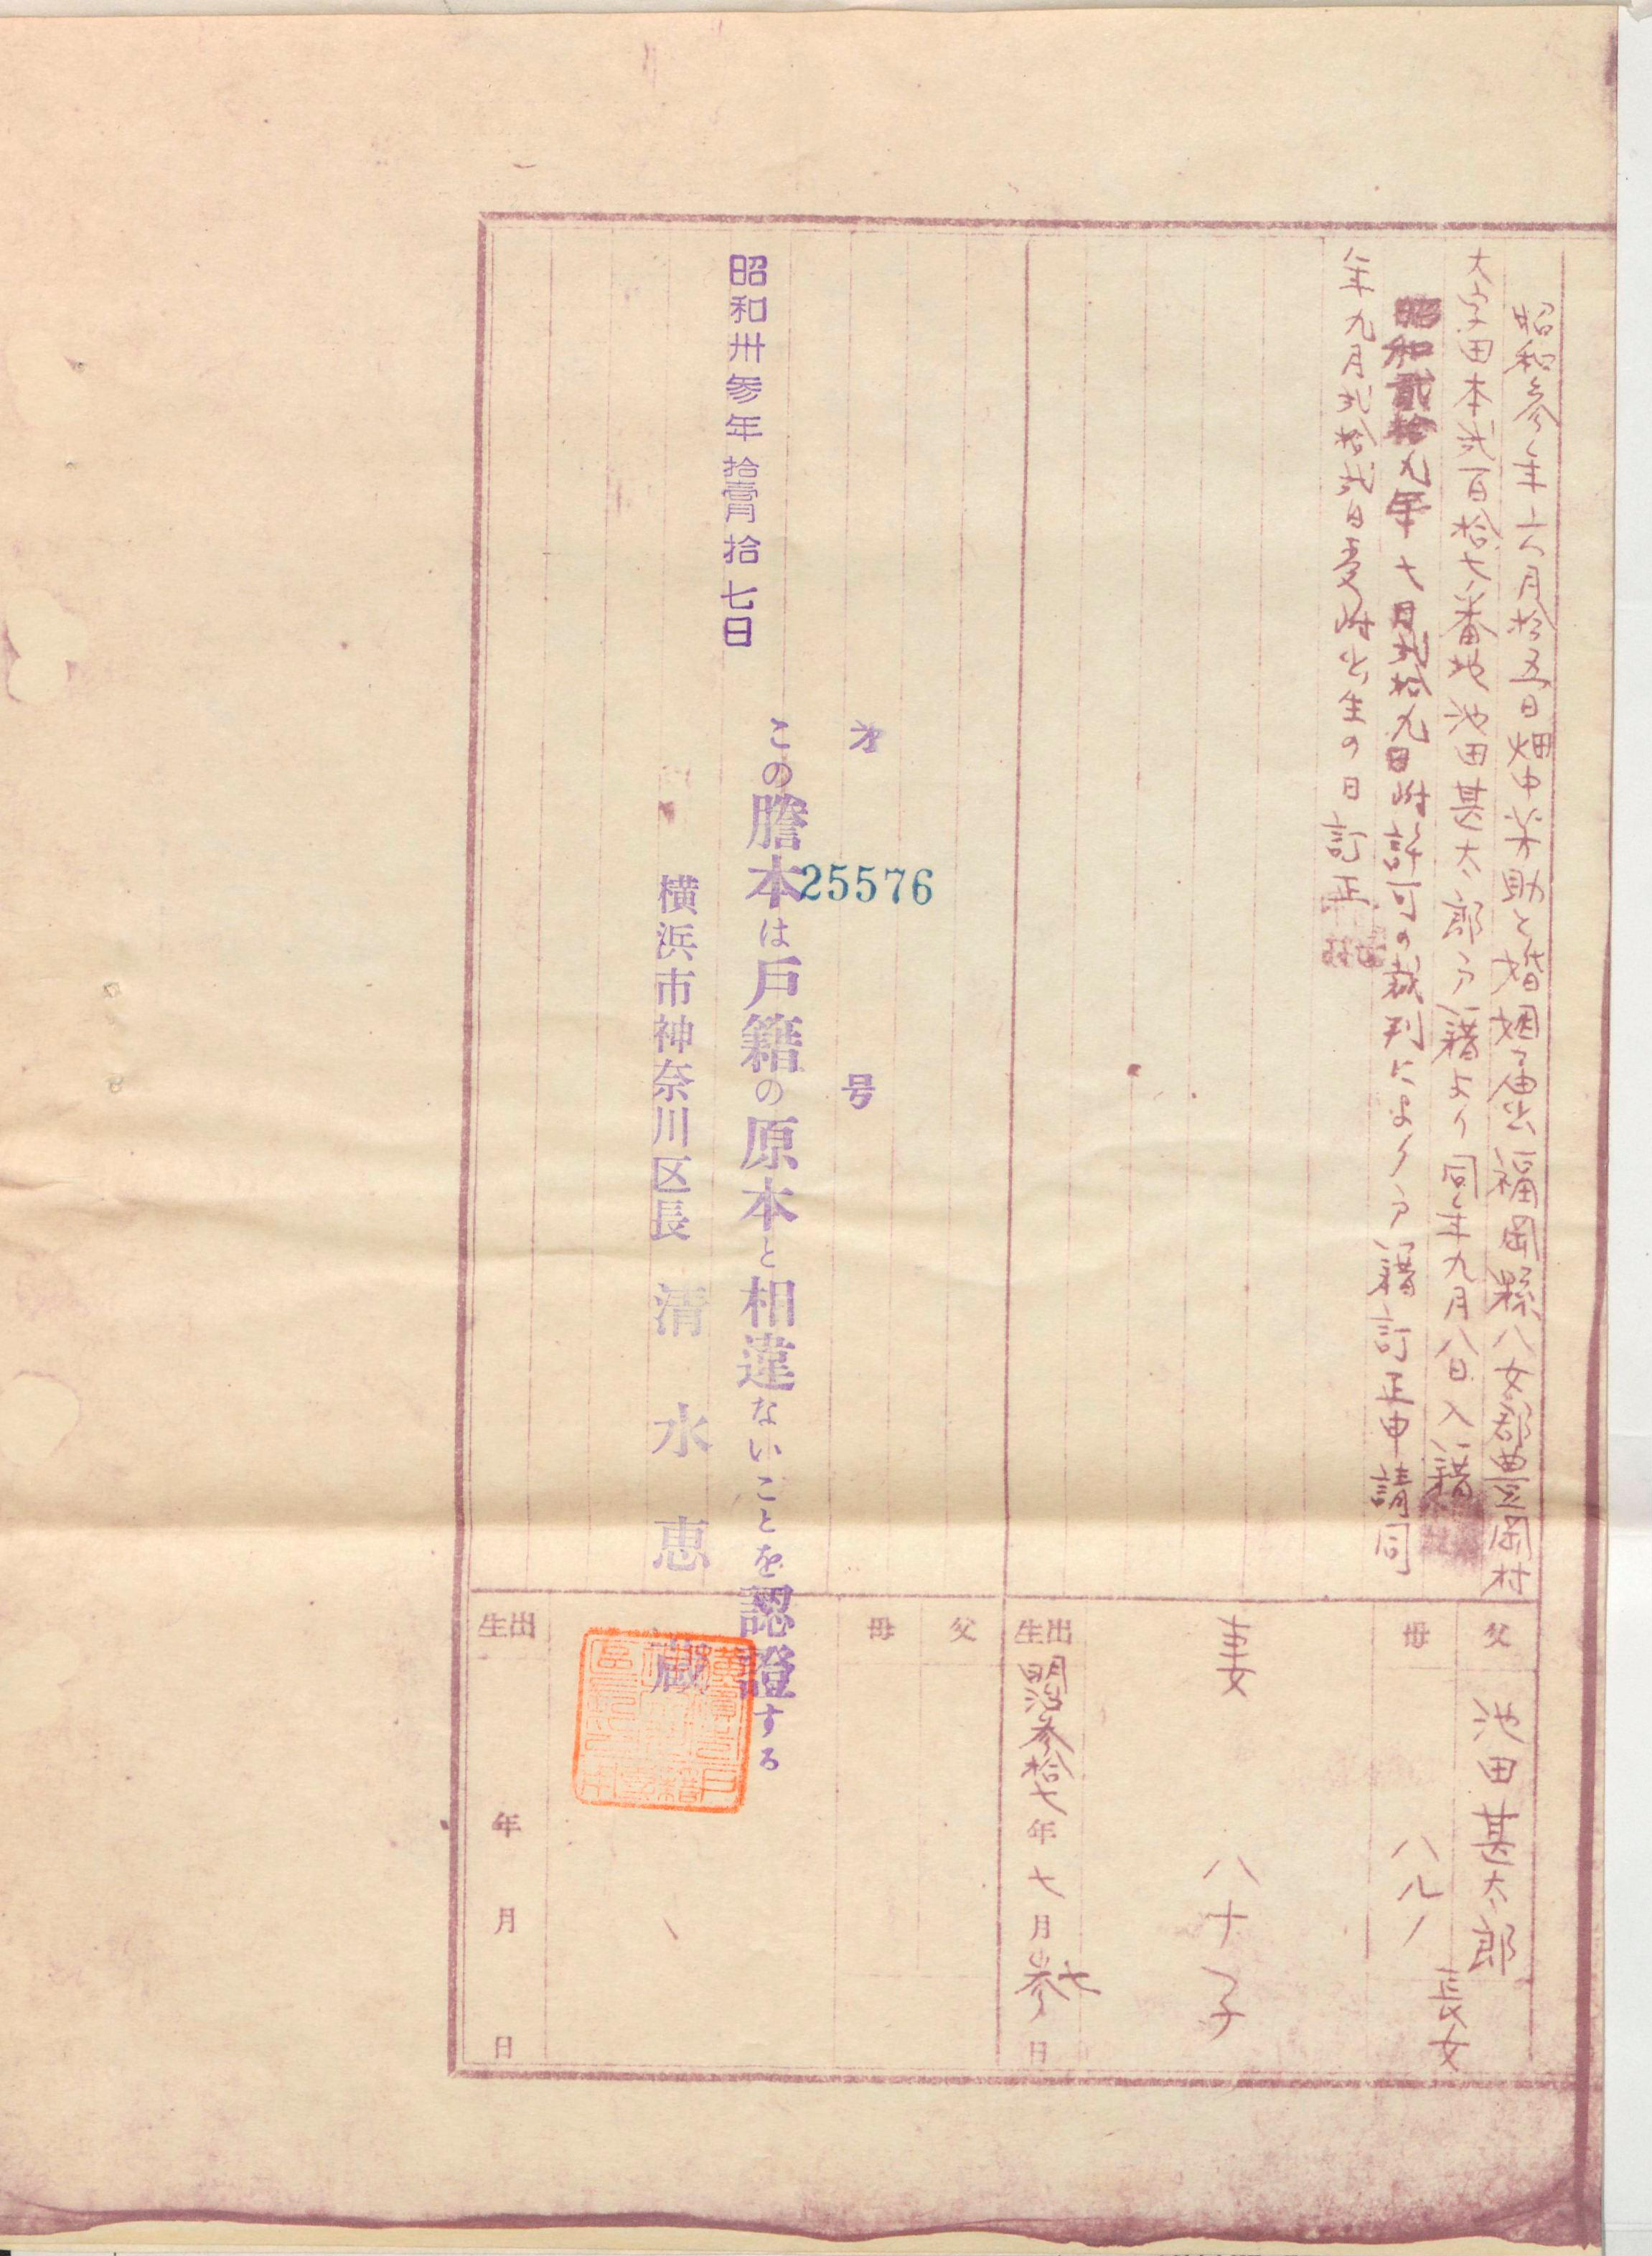 昭和参年六月拾五日畑中米助と婚姻届出福岡縣八女郡豊岡村
大字田本弐百拾七番地池田甚太郎戸籍より同年九月八日入籍
昭和貳拾九年七月弐拾九日附許可の裁判により戸籍訂正申請同
年九月弐拾弐日受附出生の日訂正
父 池田甚太郎
母 ハル
長女
妻 八十子
出生 明治参拾七年七月参日
七
父
母
出生 年 月 日
才 25576 号
この謄本は戸籍の原本と相違ないことを認證する
昭和卅参年拾壹月拾七日
横浜市神奈川区長 清水恵蔵